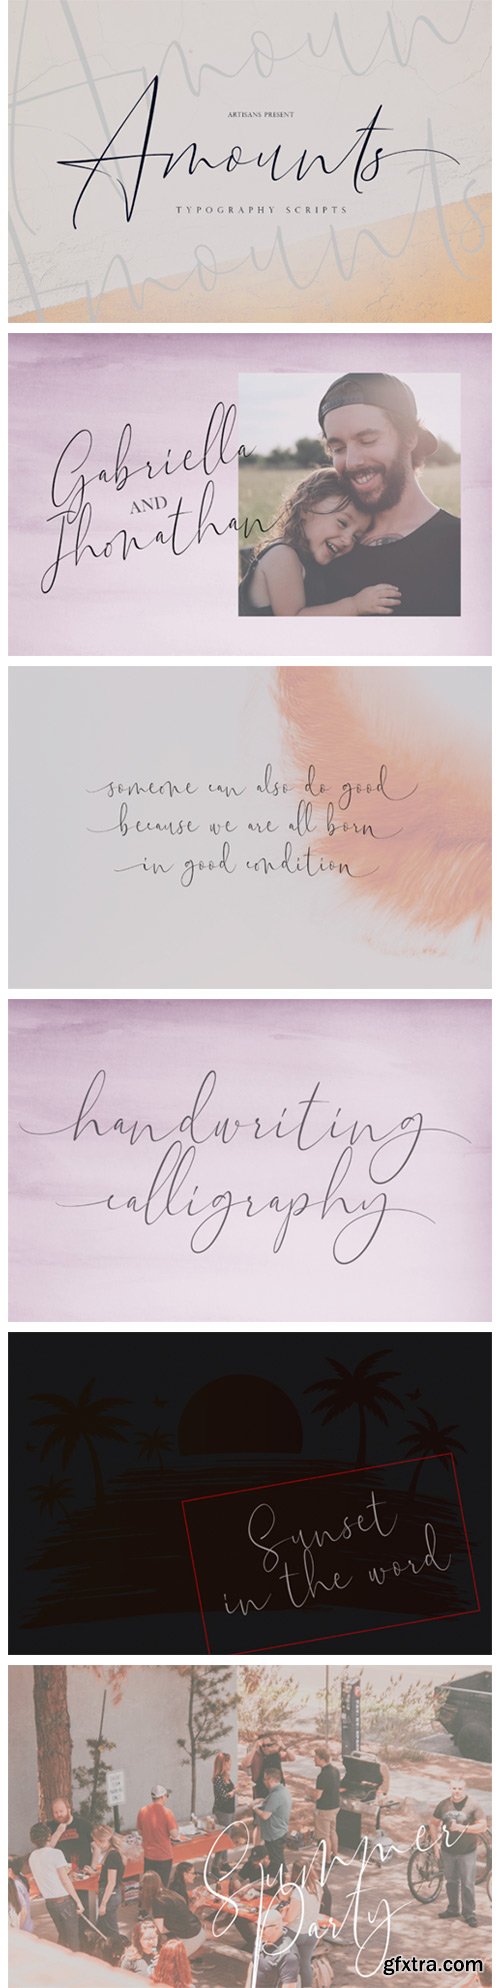 ARTISANS PRESENT
Amounts
TYPOGRAPHY SCRIPTS
Amounts
Amounts
Gabriella
AND
Jhonathan
someone can also do good
because we are all born
in good condition
handwriting
calligraphy
Sunset
in the word
Summer
Party
gfxtra.com